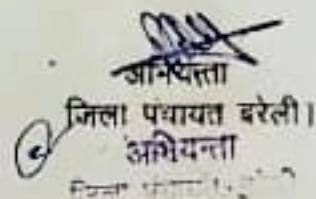 अभियन्ता
जिला पंचायत बरेली।
अभियन्ता